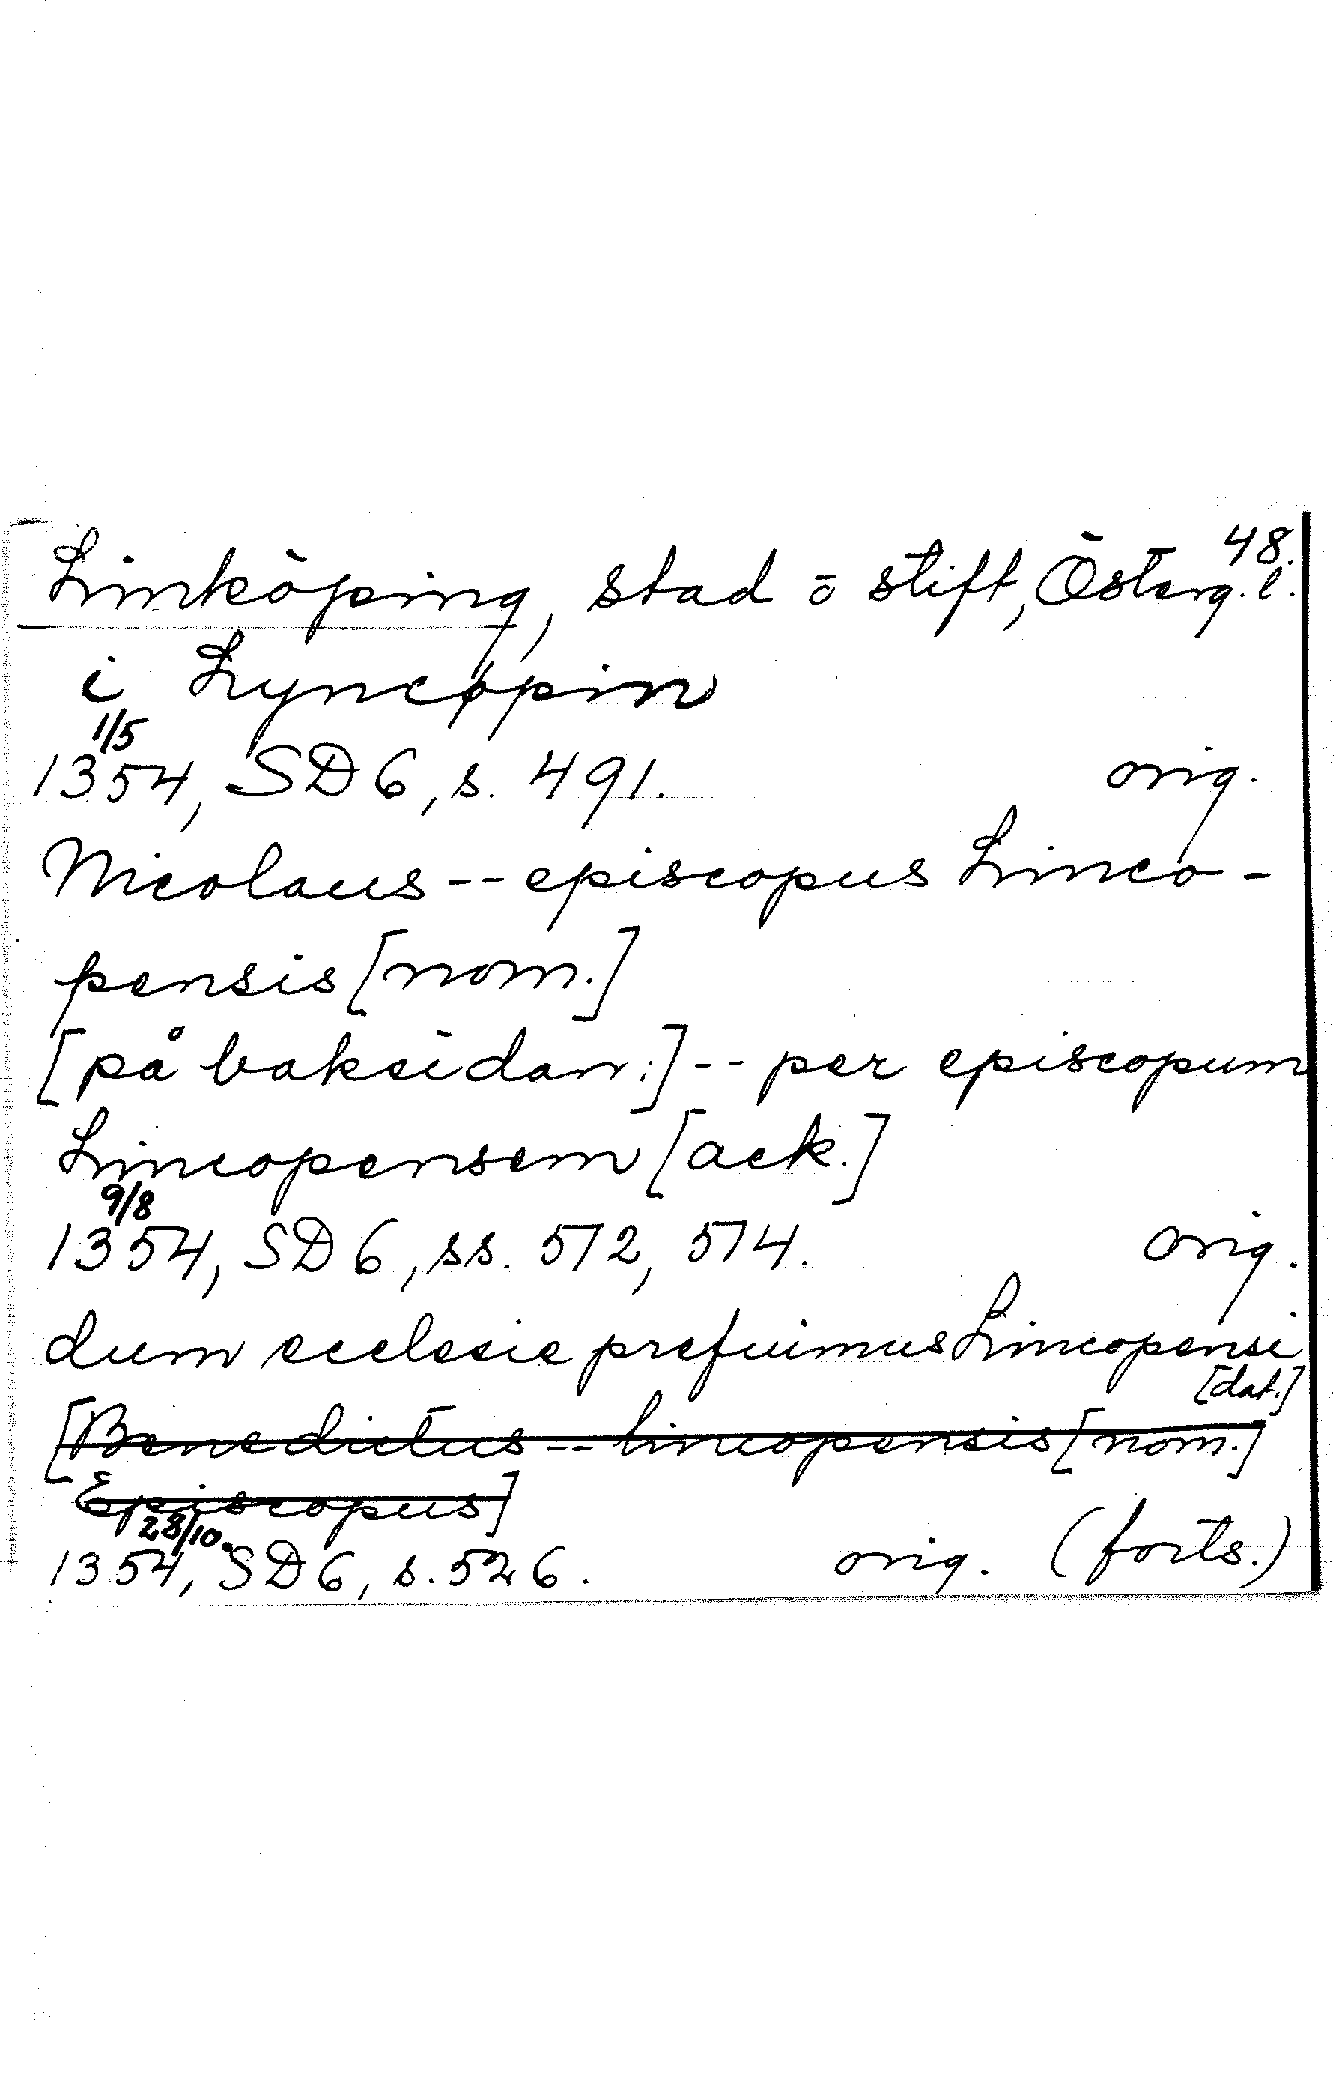 48.
Linköping, stad o stift, Österg. l.
i Lyncøpin
1/5
1354, SD 6, s. 491. orig.
Nicolaus -- episcopus Linco-
pensis [nom.]
[på baksidan:] -- per episcopum
Lincopensem [ack.]
9/8
1354, SD 6, ss. 512, 514. orig.
dum ecclesie prefuimus Lincopensi
[dat.]
[Benedictus -- lincopensis [nom.]
Episcopus]
28/10.
1354, SD 6, s. 526. orig. (forts.)